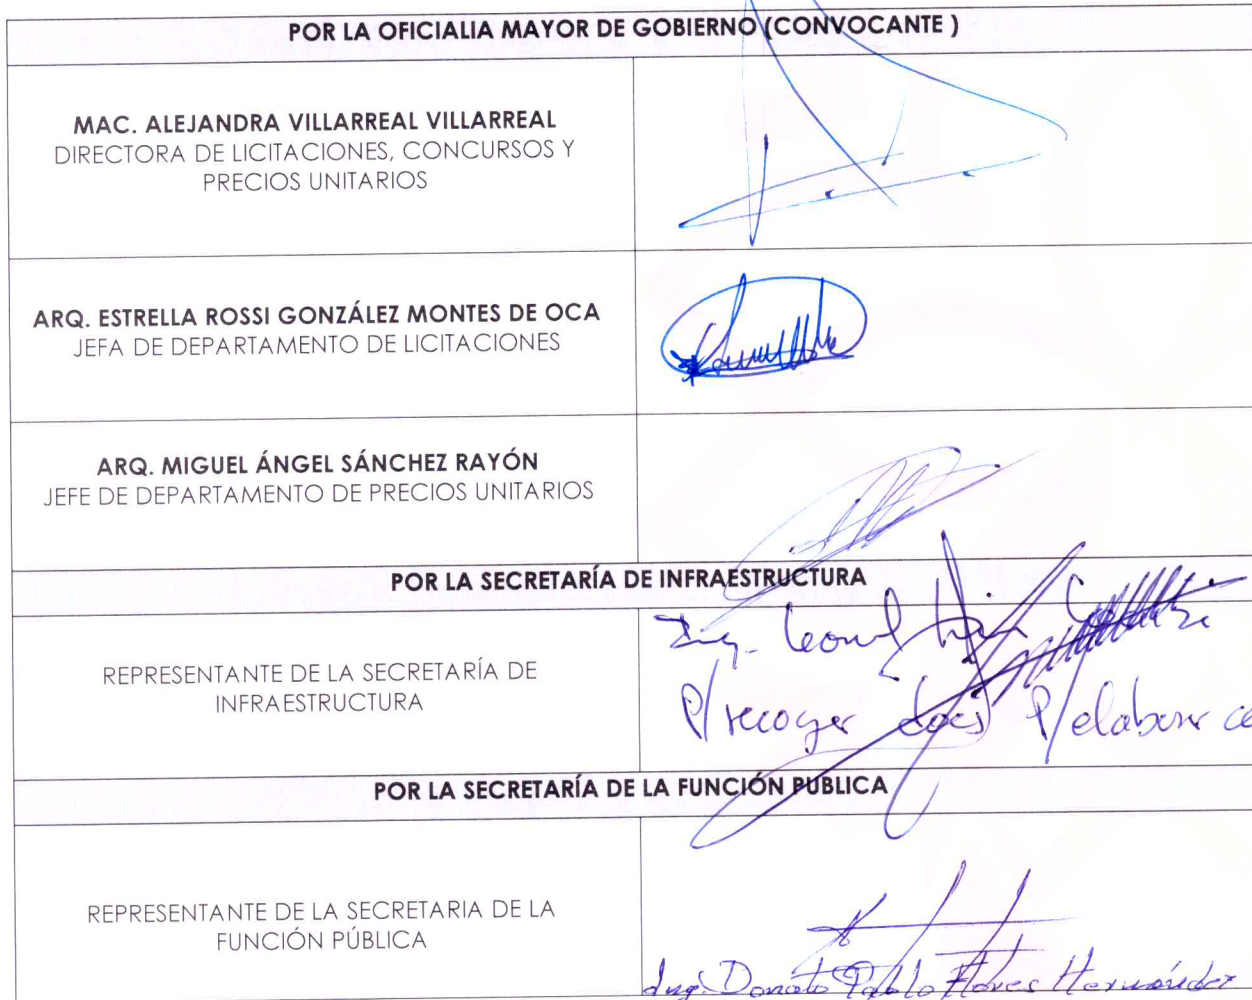 POR LA OFICIALIA MAYOR DE GOBIERNO (CONVOCANTE )
MAC. ALEJANDRA VILLARREAL VILLARREAL
DIRECTORA DE LICITACIONES, CONCURSOS Y
PRECIOS UNITARIOS
ARQ. ESTRELLA ROSSI GONZÁLEZ MONTES DE OCA
JEFA DE DEPARTAMENTO DE LICITACIONES
ARQ. MIGUEL ÁNGEL SÁNCHEZ RAYÓN
JEFE DE DEPARTAMENTO DE PRECIOS UNITARIOS
POR LA SECRETARÍA DE INFRAESTRUCTURA
REPRESENTANTE DE LA SECRETARÍA DE
INFRAESTRUCTURA
Ing. Leonel
P/recoger docs P/elaborar
POR LA SECRETARÍA DE LA FUNCIÓN PÚBLICA
REPRESENTANTE DE LA SECRETARIA DE LA
FUNCIÓN PÚBLICA
Ing. Donato Pablo Flores Hernández